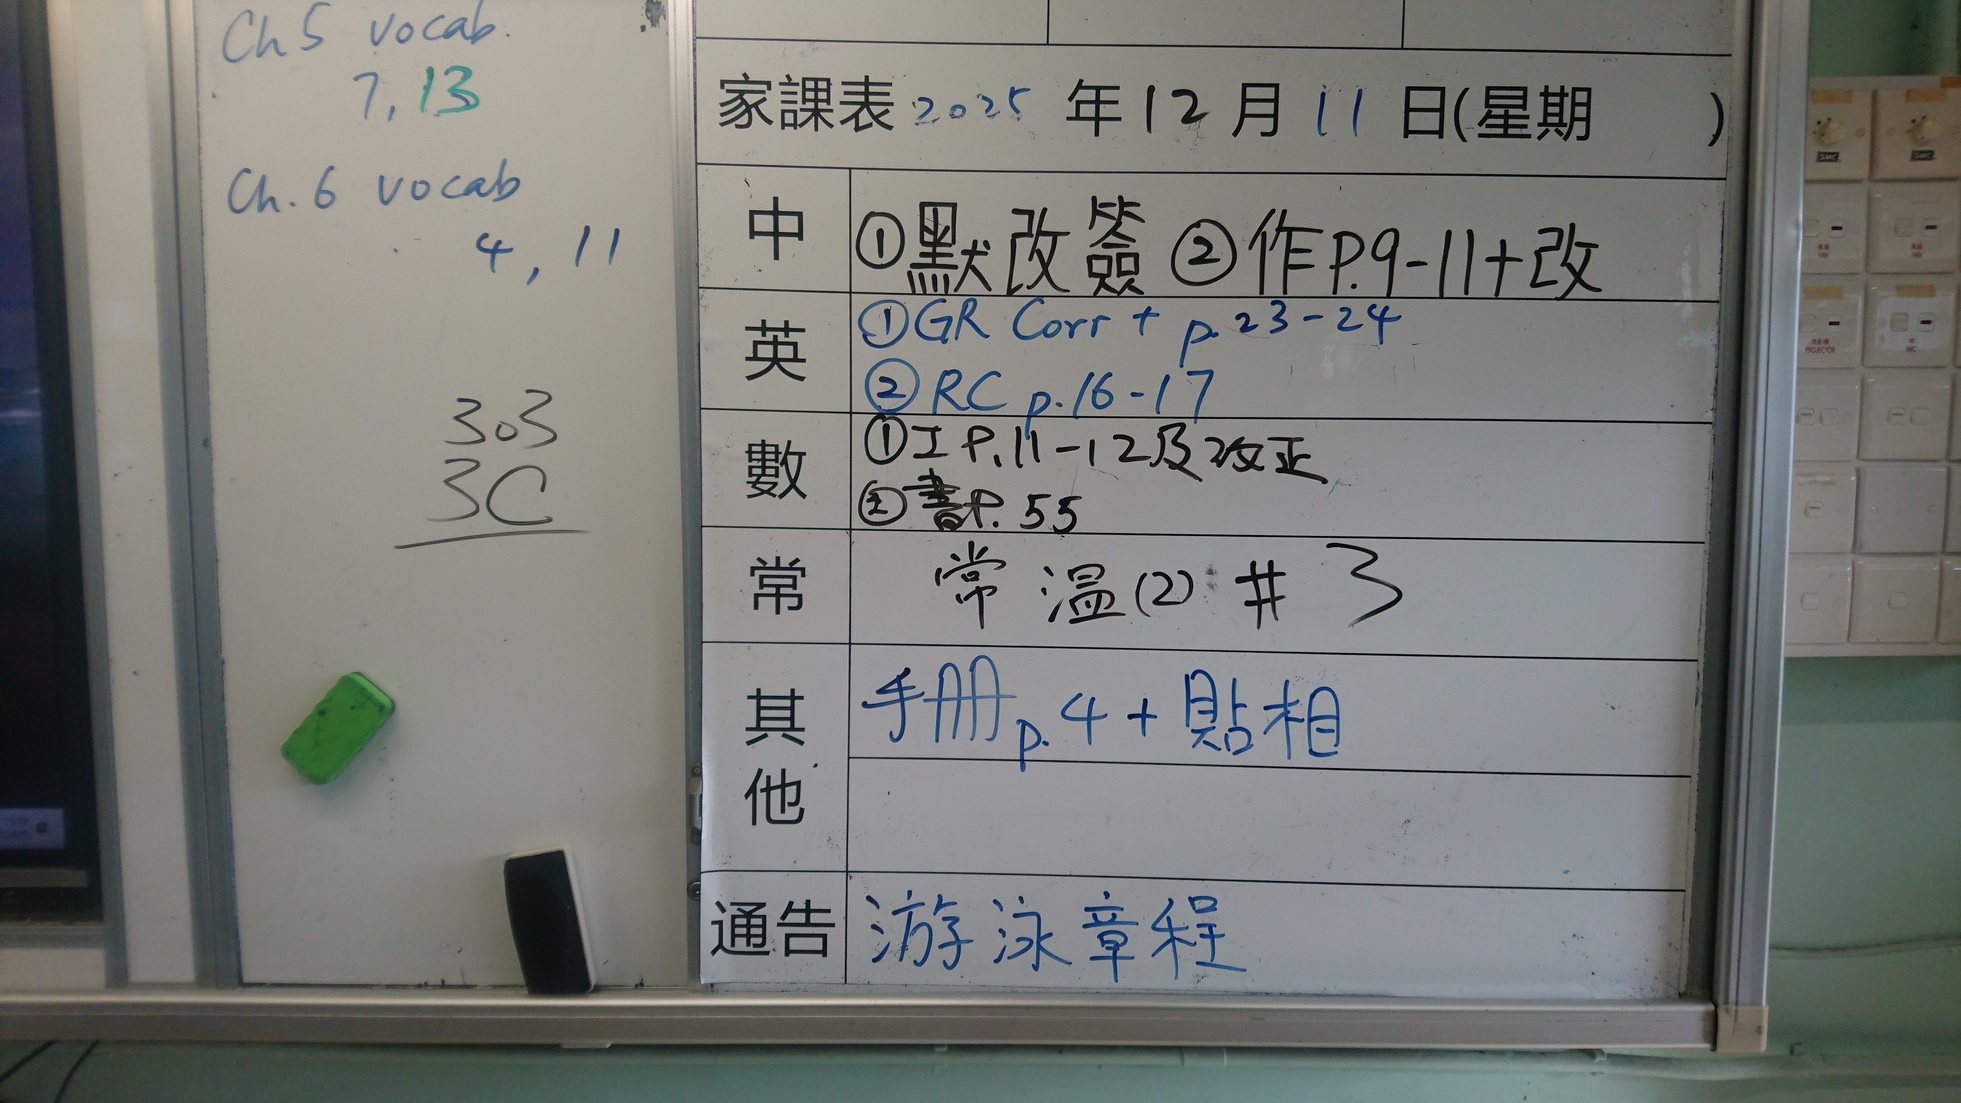 Ch 5 vocab.
7, 13
Ch. 6 vocab
4, 11
303
3C
家課表 2025 年 12 月 11 日(星期 )
中 ①默改簽 ②作P.9-11+改
英 ①GR Corr + p.23-24
②RC p.16-17
數 ①工P.11-12及改正
②書P.55
常 常溫(2) #3
其他 手冊p.4+貼相
通告 游泳章程
SMC
SMC
PROJECTOR
MIC